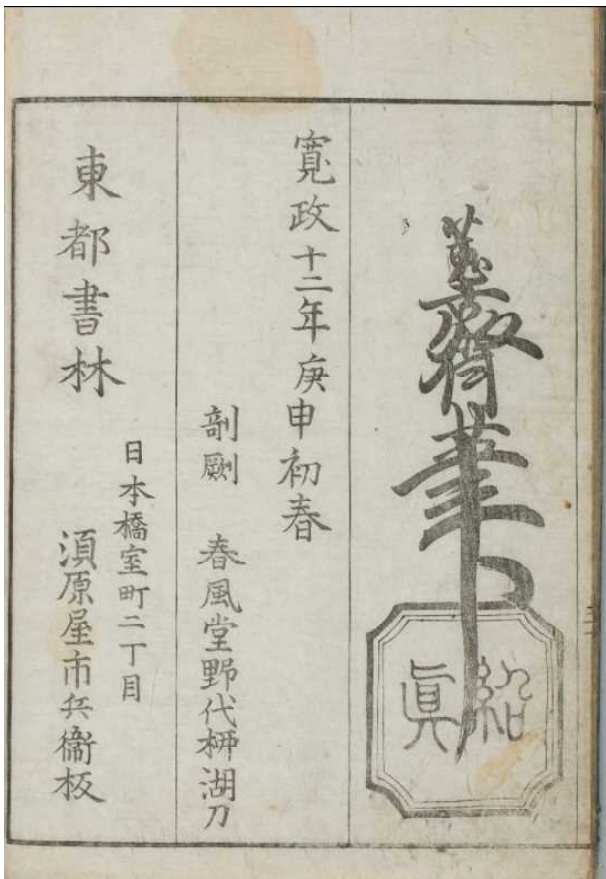 蕙齋筆
紹眞
寛政十二年庚申初春
剞劂　春風堂野代柳湖刀
東都書林
日本橋室町二丁目
須原屋市兵衛板